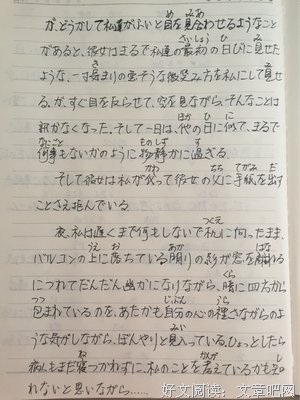 が、どうかして私達がふいと目を見合わせるようなこと
があると、彼女はまるで私達の最初の日々に見せた
ような、一寸気まりの悪そうな微笑み方を私にして見せ
る。が、すぐ目を反らせて、空を見ながら、そんなことは
訊かなくなった。そして一日は、他の日に似て、まるで
何事もないかのように物静かに過ぎる。
そして彼女は私が代って彼女の父に手紙を出す
ことさえ拒んでいる。
夜、私は遅くまで何もしないで机に向ったまま、
バルコンの上に落ちている明りの影が窓を離れる
につれてだんだん幽かになりながら、暗に四方から
包まれているのを、あたかも自分の心の裡さながらのよ
うな気がしながら、ぼんやりと見入っている。ひょっとしたら
病人もまだ寝つかれずに、私のことを考えているかも知
れないと思いながら……
好文阅读：文章吧网